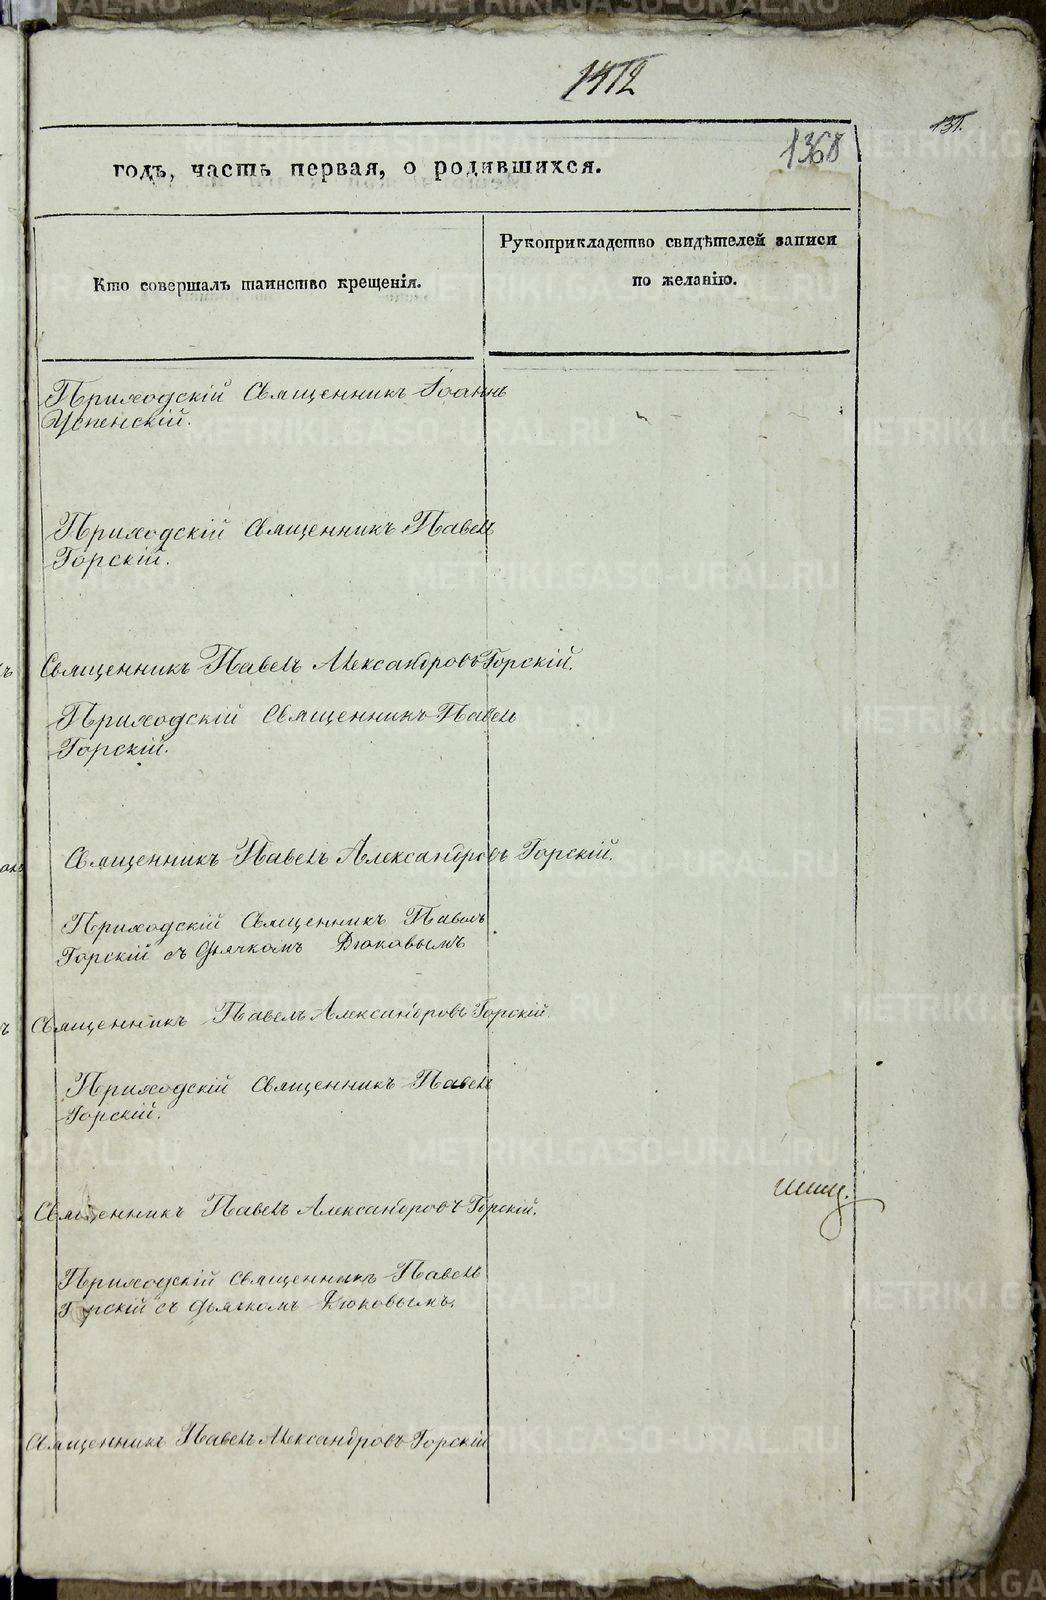 1368
131.
годъ, часть первая, о родившихся.
Кто совершалъ таинство крещенія.
Рукоприкладство свидѣтелей записи
по желанію.
Приходскій Священникъ Іоаннъ
Успенскій.
Приходскій Священникъ Павелъ
Горскій.
Священникъ Павелъ Александровъ Горскій.
Приходскій Священникъ Павелъ
Горскій.
Священникъ Павелъ Александровъ Горскій.
Приходскій Священникъ Павелъ
Горскій съ дьячкомъ Дюковымъ
Священникъ Павелъ Александровъ Горскій.
Приходскій Священникъ Павелъ
Горскій.
Священникъ Павелъ Александровъ Горскій.
Приходскій Священникъ Павелъ
Горскій съ дьячкомъ Дюковымъ.
Священникъ Павелъ Александровъ Горскій
METRIKI.GASO-URAL.RU